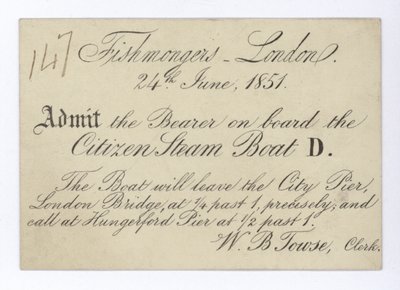 147
Fishmongers - London.
24th June, 1851.
Admit the Bearer on board the
Citizen Steam Boat D.
The Boat will leave the City Pier,
London Bridge, at ¼ past 1, precisely; and
call at Hungerford Pier at ½ past 1.
W. B Towse, Clerk.